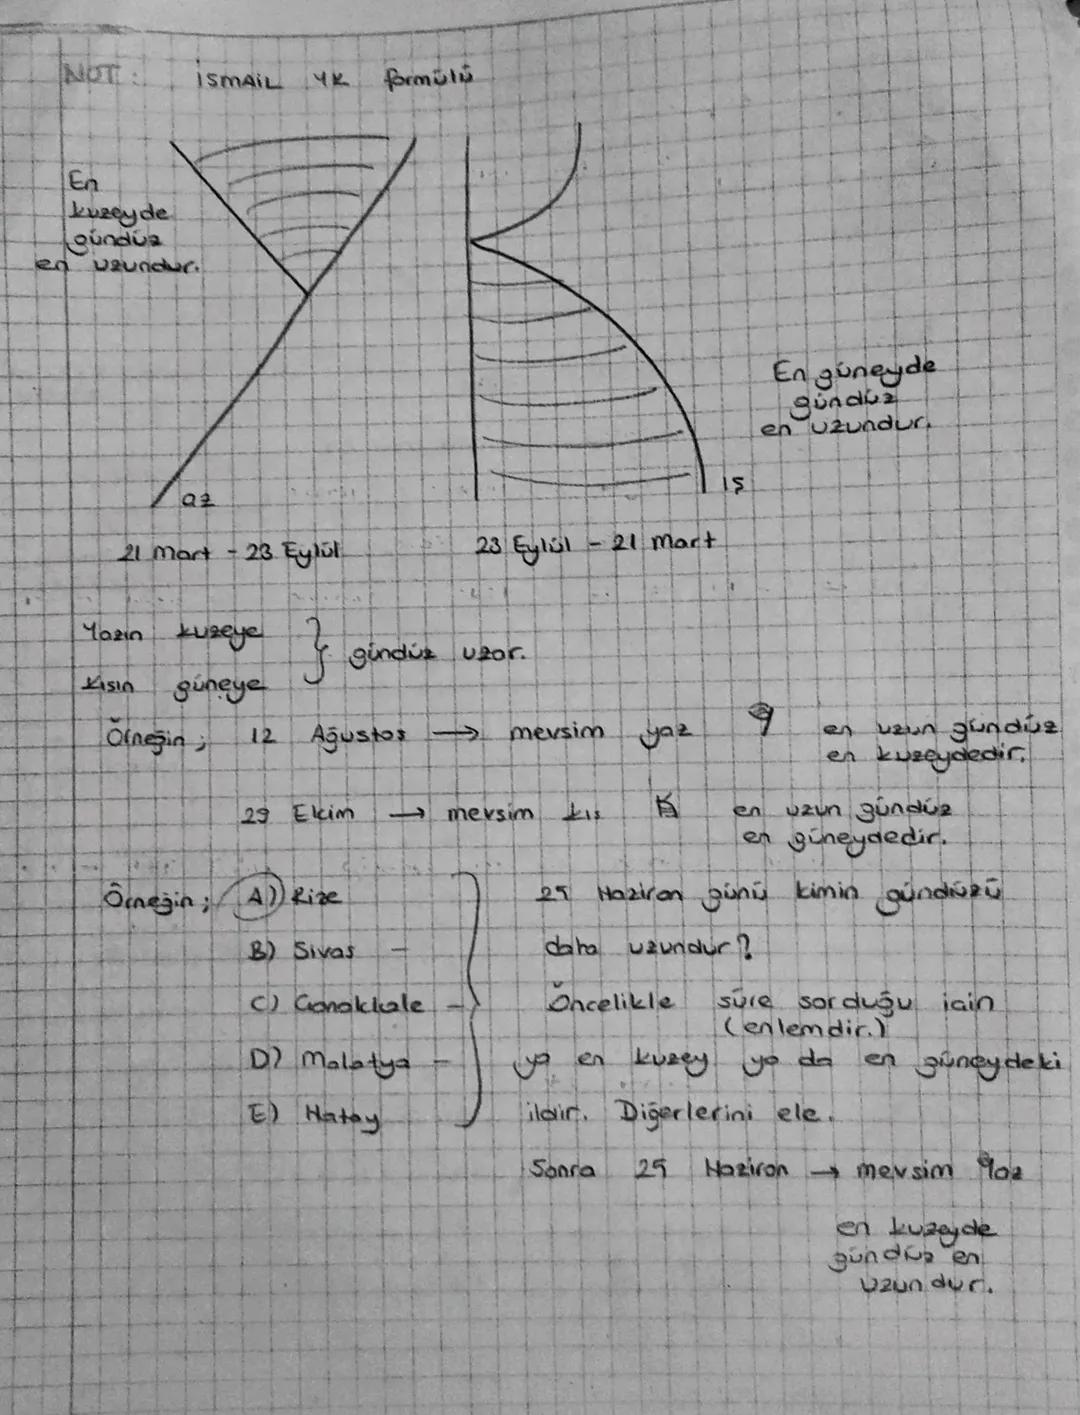 NOT: İSMAİL YK formülü
En
kuzeyde
gündüz
en uzundur.
En güneyde
gündüz
en uzundur.
az
ış
21 Mart - 23 Eylül
23 Eylül - 21 Mart
Yazın kuzeye
Kışın güneye
gündüz uzar.
Örneğin; 12 Ağustos → mevsim yaz en uzun gündüz
en kuzeydedir.
29 Ekim → mevsim kış K en uzun gündüz
en güneydedir.
Örneğin; A) Rize
B) Sivas -
C) Çanakkale -
D) Malatya -
E) Hatay
25 Haziran günü kimin gündüzü
daha uzundur?
Öncelikle süre sorduğu için
(enlemdir.)
ya en kuzey ya da en güneydeki
ildir. Diğerlerini ele.
Sonra 25 Haziran → mevsim Yaz
en kuzeyde
gündüz en
uzundur.